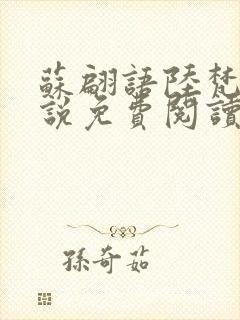 蘇翩語陸梵
說免費閱讀
孫奇茹